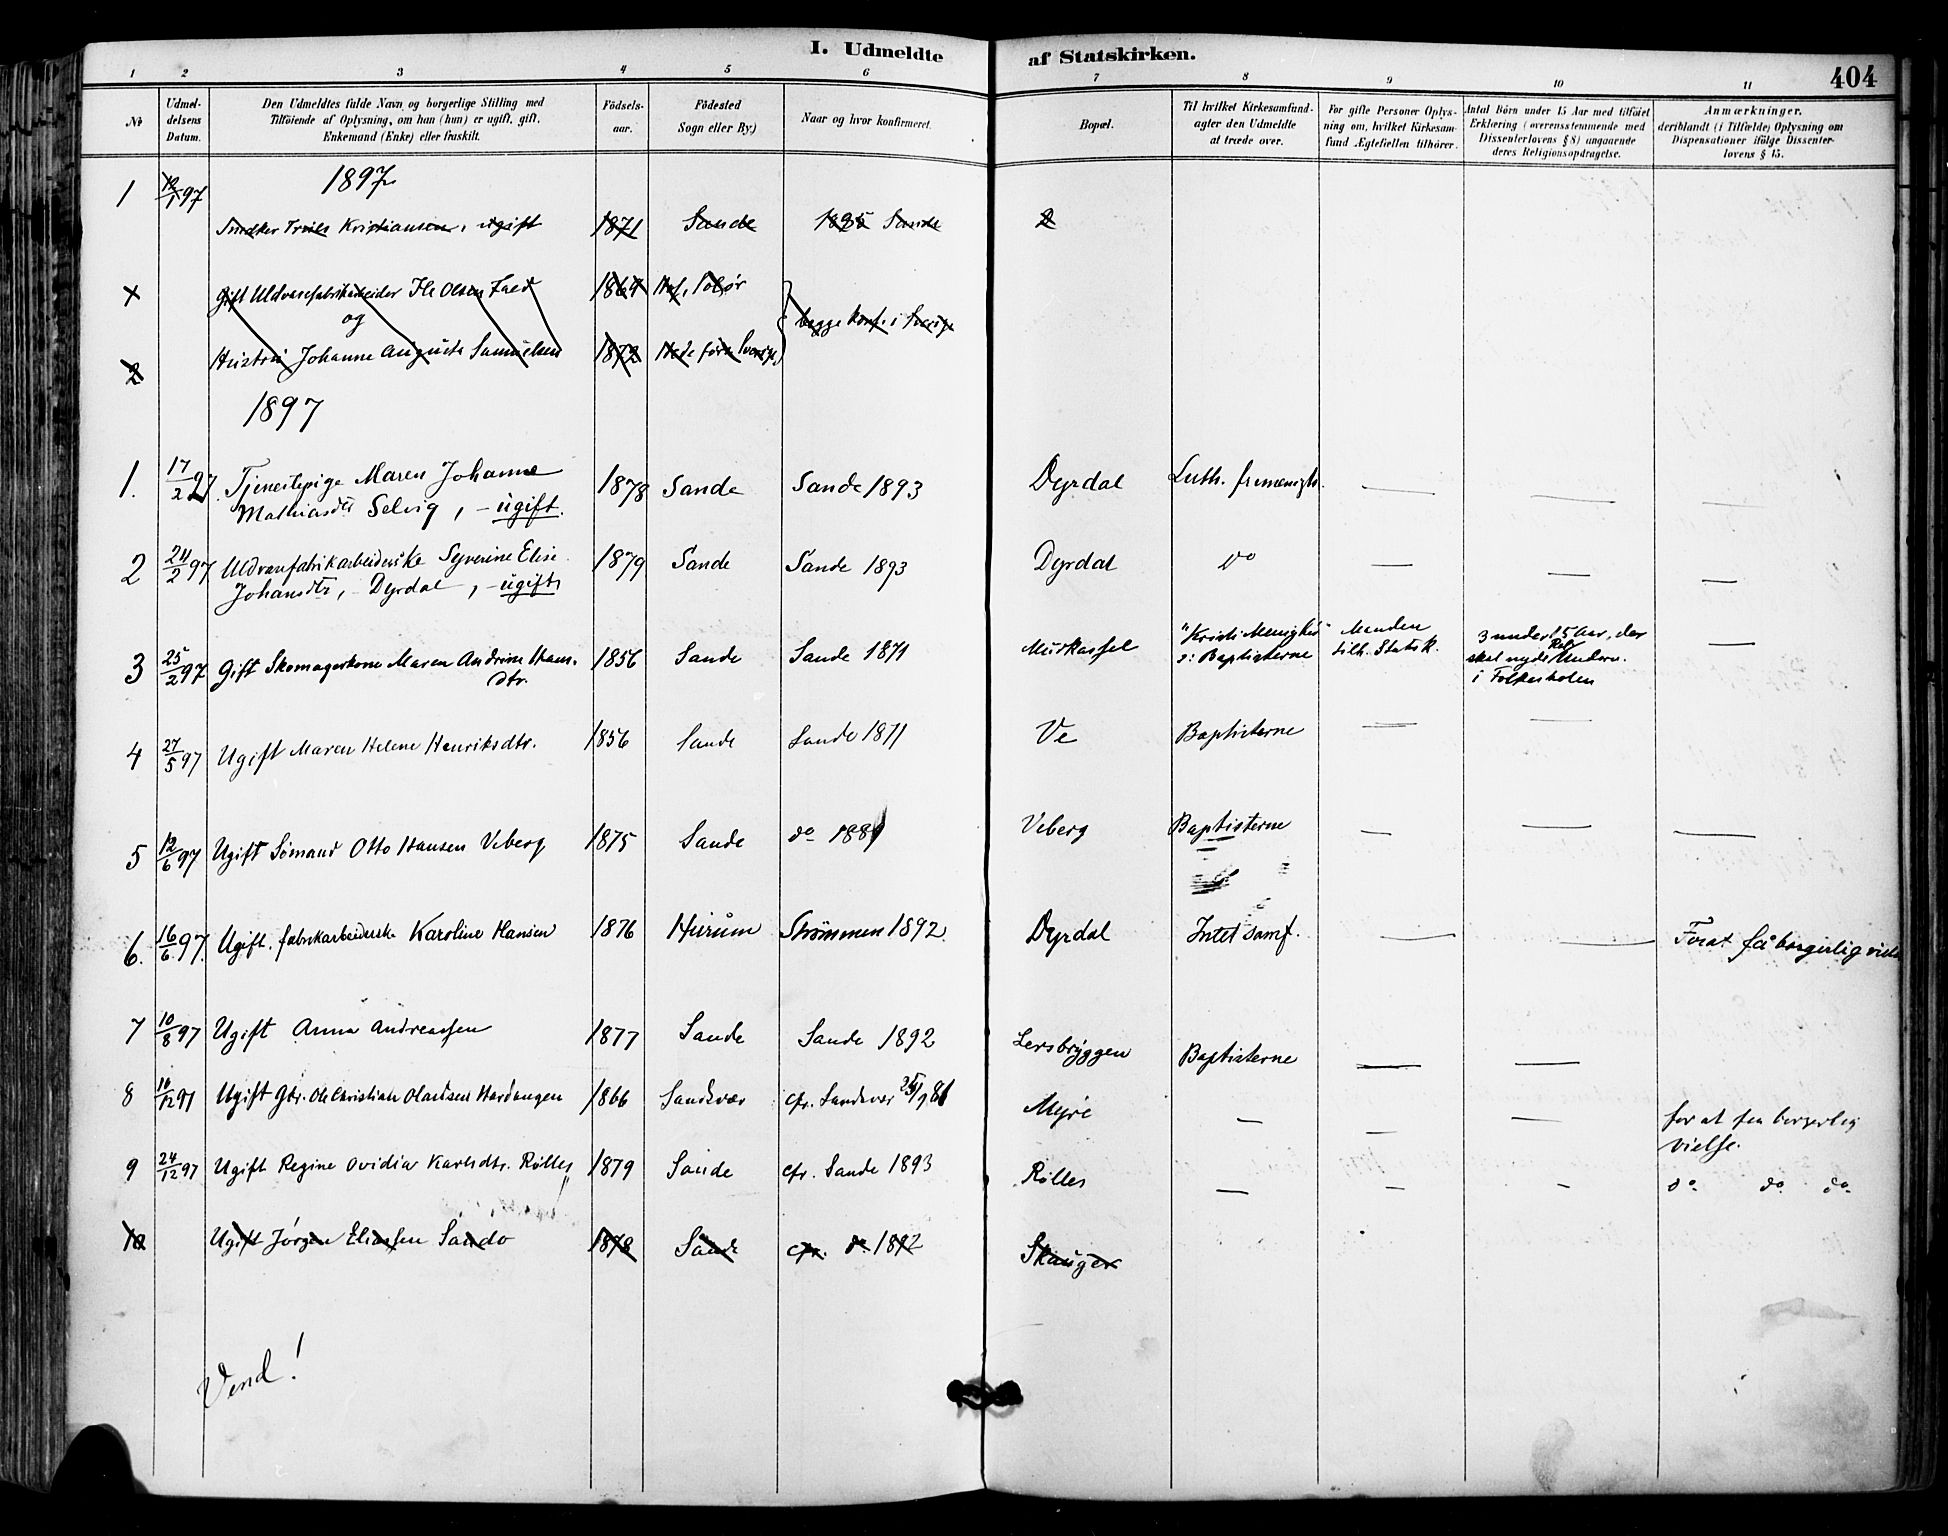 I. Udmeldte af Statskirken.
404
1 2 3 4 5 6 7 8 9 10 11
No
Udmeldelsens Datum.
Den Udmeldtes fulde Navn og borgerlige Stilling med
Tilföiende af Oplysning, om han (hun) er ugift, gift,
Enkemand (Enke) eller fraskilt.
Födsels-
aar.
Födested
Sogn eller By.)
Naar og hvor konfirmeret.
Bopæl.
Til hvilket Kirkesamfund-
agter den Udmeldte
at træde over.
For gifte Personer Oplys-
ning om, hvilket Kirkesam-
fund Ægtefællen tilhörer.
Antal Börn under 15 Aar med tilföiet
Erklæring (overensstemmende med
Dissenterlovens § 8) angaaende
deres Religionsopdragelse.
Anmærkninger,
deriblandt (i Tilfælde) Oplysning om
Dispensationer ifölge Dissenter-
lovens § 15.
1897
1 97 Kristiansen, ugift 1871 Sande Sande
Gift Uldvarefabrikarbeider Ole Olsen 1864 Hof, Solør
og begge konf. i Sverige
2 Hustru Johanne Augusta Samuelsen 1872 Sverige
1897
1. 17/2 97. Tjenestepige Maren Johanne 1878 Sande Sande 1893 Dyrdal Luth. frimenigh. — — —
Mathiasdtr Selvig, - ugift.
2 24/2 97 Uldvarefabrikarbeiderske Syverine Elise 1879 Sande Sande 1893 Dyrdal do — — —
Johansdtr, - Dyrdal, - ugift
3 25/2 97 Gift Skomagerkone Maren Andrine Hans- 1856 Sande Sande 1871
dtr.
"Kristi Menighed"
ɔ: Baptisterne
Manden
tilh. Statsk.
3 under 15 Aar, der
skal nyde Rel. Underv.
i Folkeskolen
—
4 27/5 97 Ugift Maren Helene Henriksdtr. 1856 Sande Sande 1871 Ve Baptisterne — —
5 12/6 97 Ugift Sømand Otto Hansen Veberg 1875 Sande do 1889 Veberg Baptisterne — — —
6. 16/6 97. Ugift. fabrikarbeiderske Karoline Hansen 1876 Hurum Strømmen 1892. Dyrdal Intet samf. — — For at få borgerlig vielse
7 10/8 97 Ugift Anna Andreassen 1877 Sande Sande 1892 Lersbryggen Baptisterne — —
8 10/12 97 Ugift Gbr. Ole Christian Olausen Hardangen 1866 Sandsvær cfr. Sandsvær 81 Myre — — — for at faa borgerlig
vielse.
9 24/12 97 Ugift Regine Ovidia Karlsdtr. Rølles 1879 Sande cfr. Sande 1893 Rølles — — — do do do
10 Ugift Jørgen Eliassen Sando 1878 Sande cfr. do 1892 Skauger
Vend!